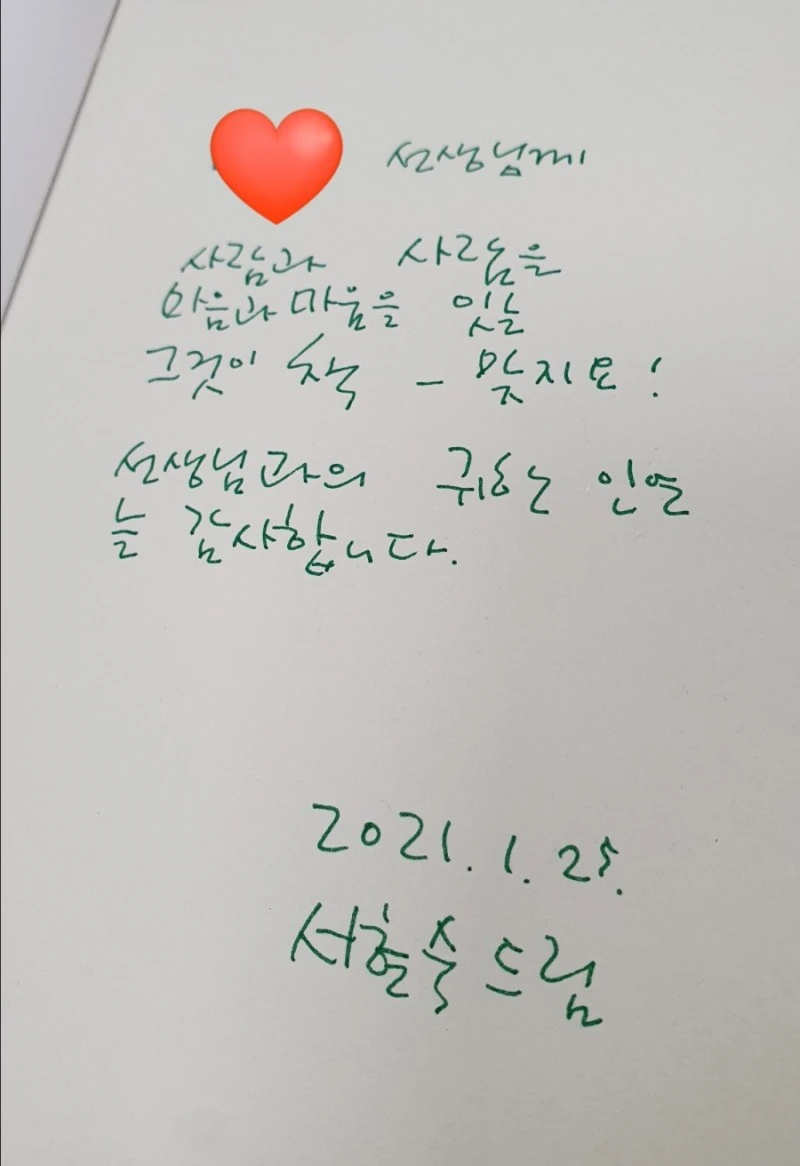 선생님께
사람과 사람을
마음과 마음을 잇는
그것이 책 - 맞지요!
선생님과의 귀한 인연
늘 감사합니다.
2021. 1. 25.
드림